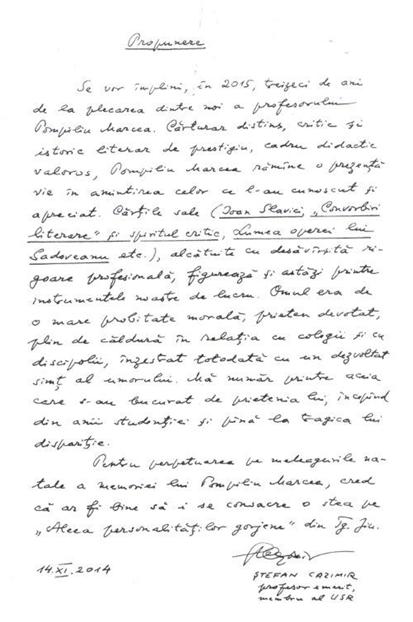 Propunere
Se vor împlini, în 2015, treizeci de ani
de la plecarea dintre noi a profesorului
Pompiliu Marcea. Cărturar distins, critic și
istoric literar de prestigiu, cadru didactic
valoros, Pompiliu Marcea rămîne o prezență
vie în amintirea celor ce l-au cunoscut și
apreciat. Cărțile sale (Ioan Slavici, „Convorbiri
literare” și spiritul critic, Lumea operei lui
Sadoveanu etc.), alcătuite cu desăvîrșită ri-
goare profesională, figurează și astăzi printre
instrumentele noastre de lucru. Omul era de
o mare probitate morală, prieten devotat,
plin de căldură în relația cu colegii și cu
discipolii, înzestrat totodată cu un dezvoltat
simț al umorului. Mă număr printre aceia
care s-au bucurat de prietenia lui, începînd
din anii studenției și pînă la tragica lui
dispariție.
Pentru perpetuarea pe meleagurile na-
tale a memoriei lui Pompiliu Marcea, cred
că ar fi bine să i se consacre o stea pe
„Aleea personalităților gorjene” din Tg. Jiu.
14.XI.2014
ȘTEFAN CAZIMIR
profesor emerit,
membru al USR